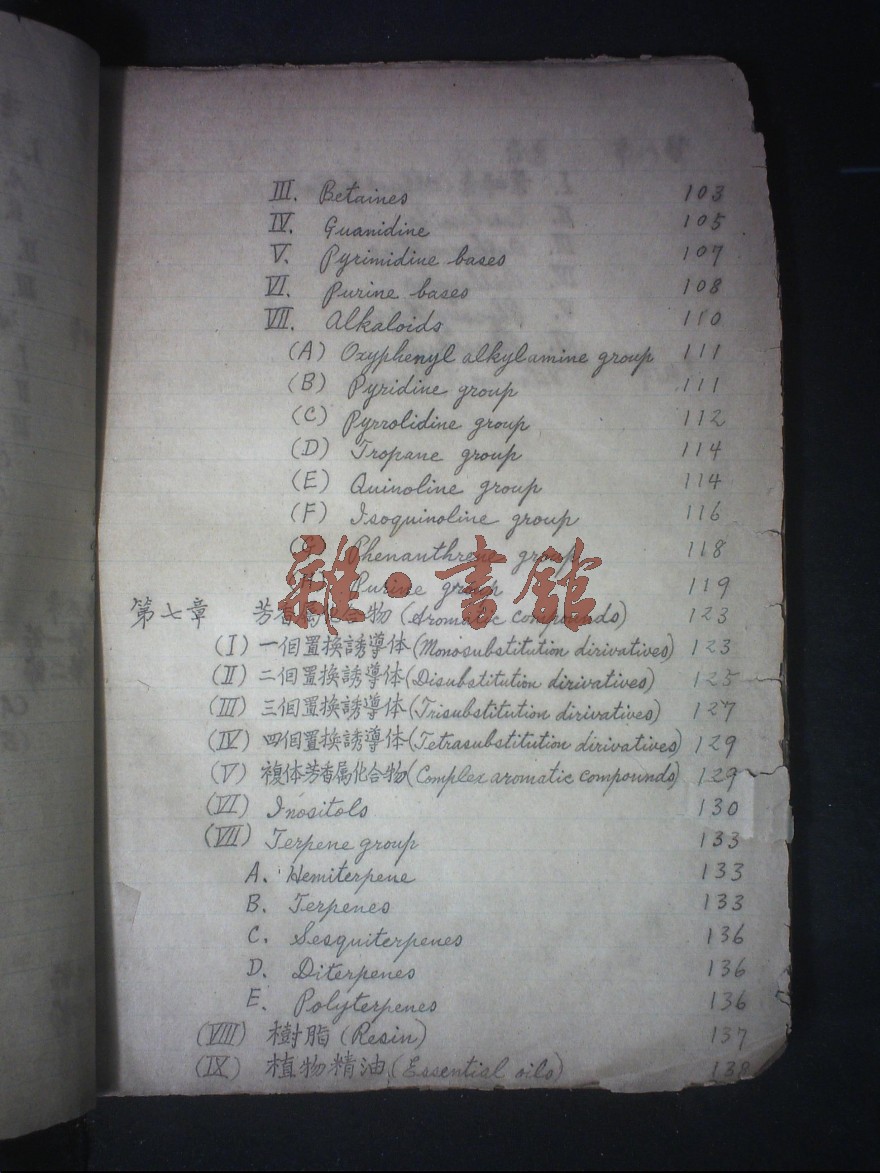 III. Betaines 103
IV. Guanidine 105
V. Pyrimidine bases 107
VI. Purine bases 108
VII. Alkaloids 110
(A) Oxyphenyl alkylamine group 111
(B) Pyridine group 111
(C) Pyrrolidine group 112
(D) Tropane group 114
(E) Quinoline group 114
(F) Isoquinoline group 116
(G) Phenanthrene group 118
(H) Purine group 119
雜·書館
第七章 芳香属化合物 (Aromatic compounds) 123
(I) 一個置換誘導体 (Monosubstitution dirivatives) 123
(II) 二個置換誘導体 (Disubstitution dirivatives) 125
(III) 三個置換誘導体 (Trisubstitution dirivatives) 127
(IV) 四個置換誘導体 (Tetrasubstitution dirivatives) 129
(V) 複体芳香属化合物 (Complex aromatic compounds) 129
(VI) Inositols 130
(VII) Terpene group 133
A. Hemiterpene 133
B. Terpenes 133
C. Sesquiterpenes 136
D. Diterpenes 136
E. Polyterpenes 136
(VIII) 樹脂 (Resin) 137
(IX) 植物精油 (Essential oils) 138